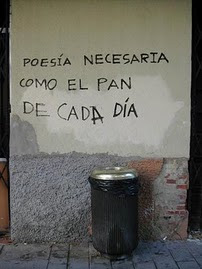 POESÍA NECESARIA
COMO EL PAN
DE CADA DÍA